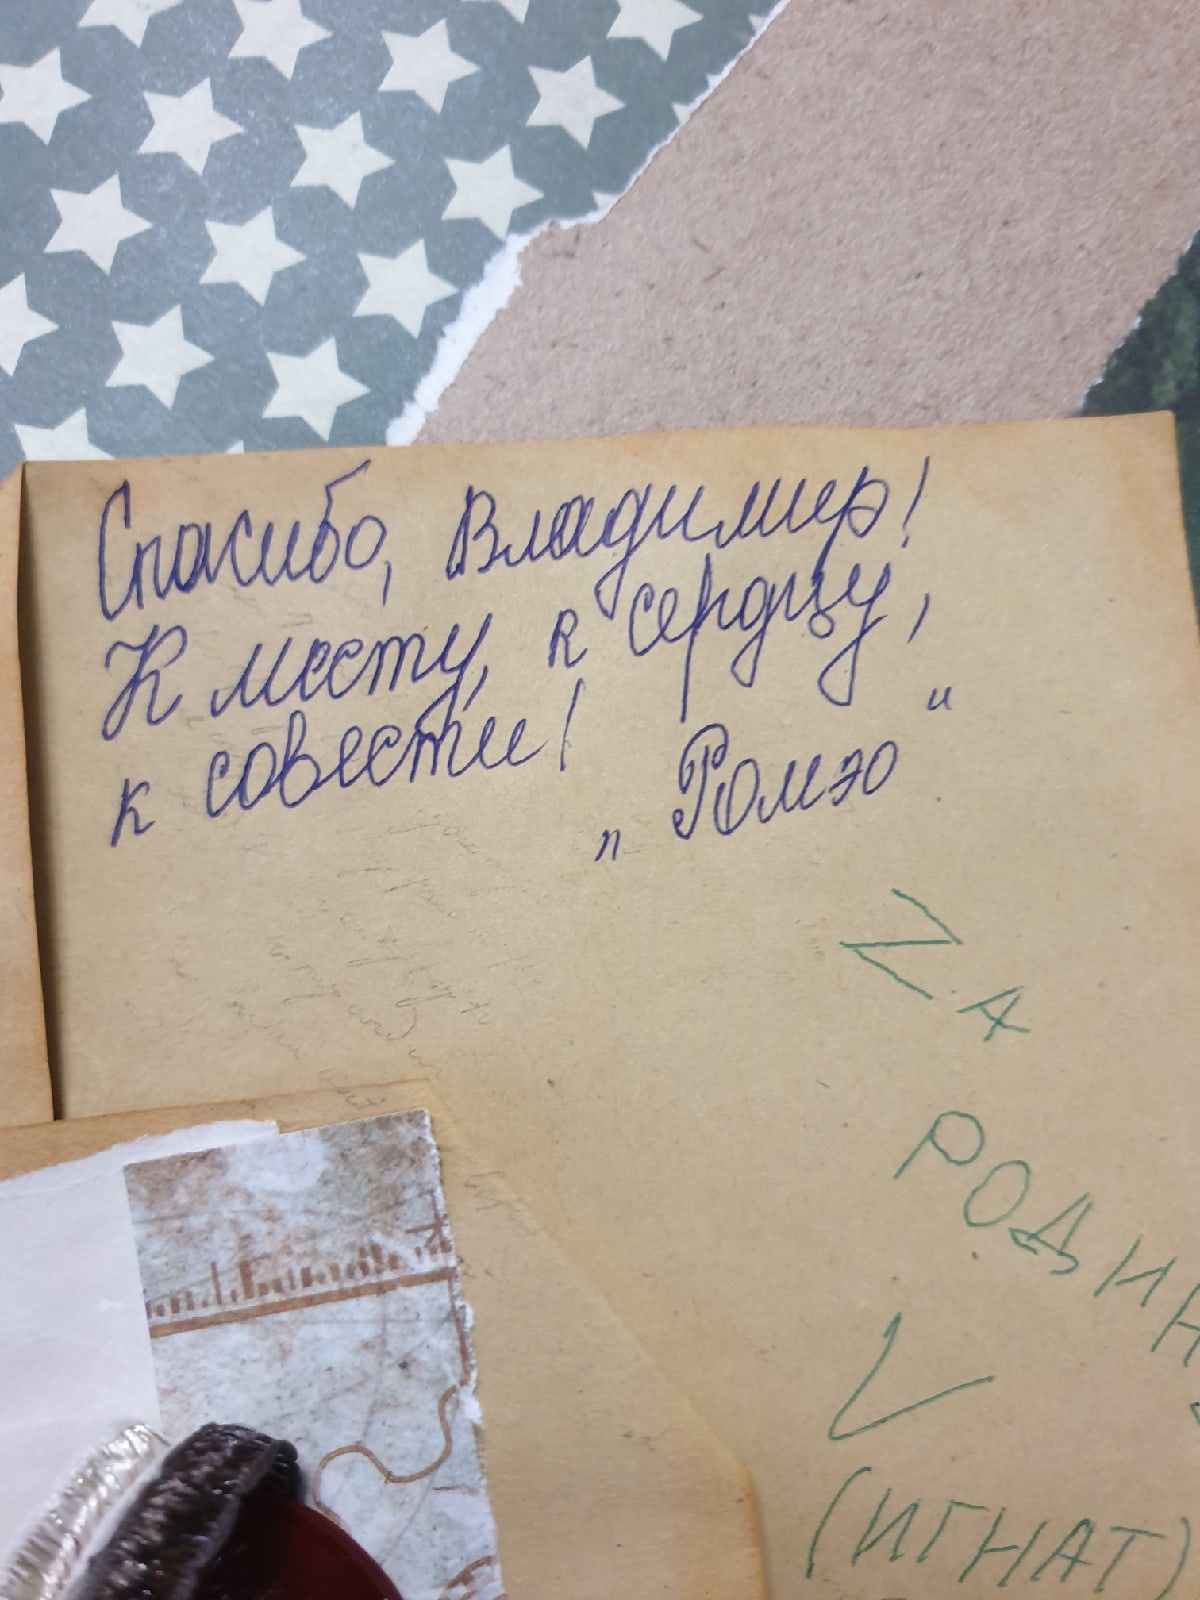 Спасибо, Владимир!
К месту, к сердцу,
к совести!
„Ромэо"
ZА
РОДИН
V
(ИГНАТ)